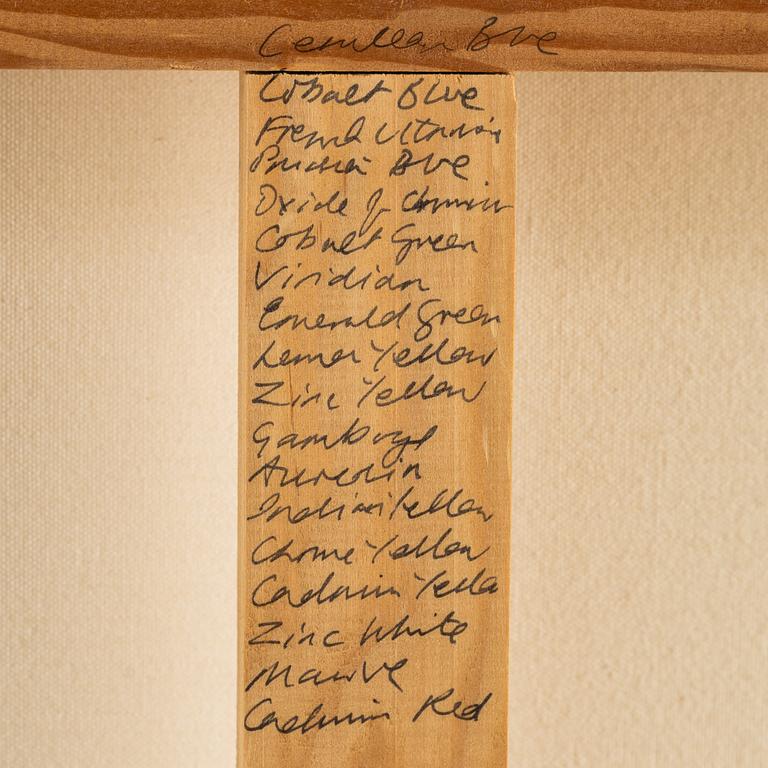 Cerulean Blue
Cobalt Blue
French Ultramarin
Prussian Blue
Oxide of Chromium
Cobalt Green
Viridian
Emerald Green
Lemon Yellow
Zinc Yellow
Gamboge
Aureolin
Indian Yellow
Chrome Yellow
Cadmium Yellow
Zinc White
Mauve
Cadmium Red